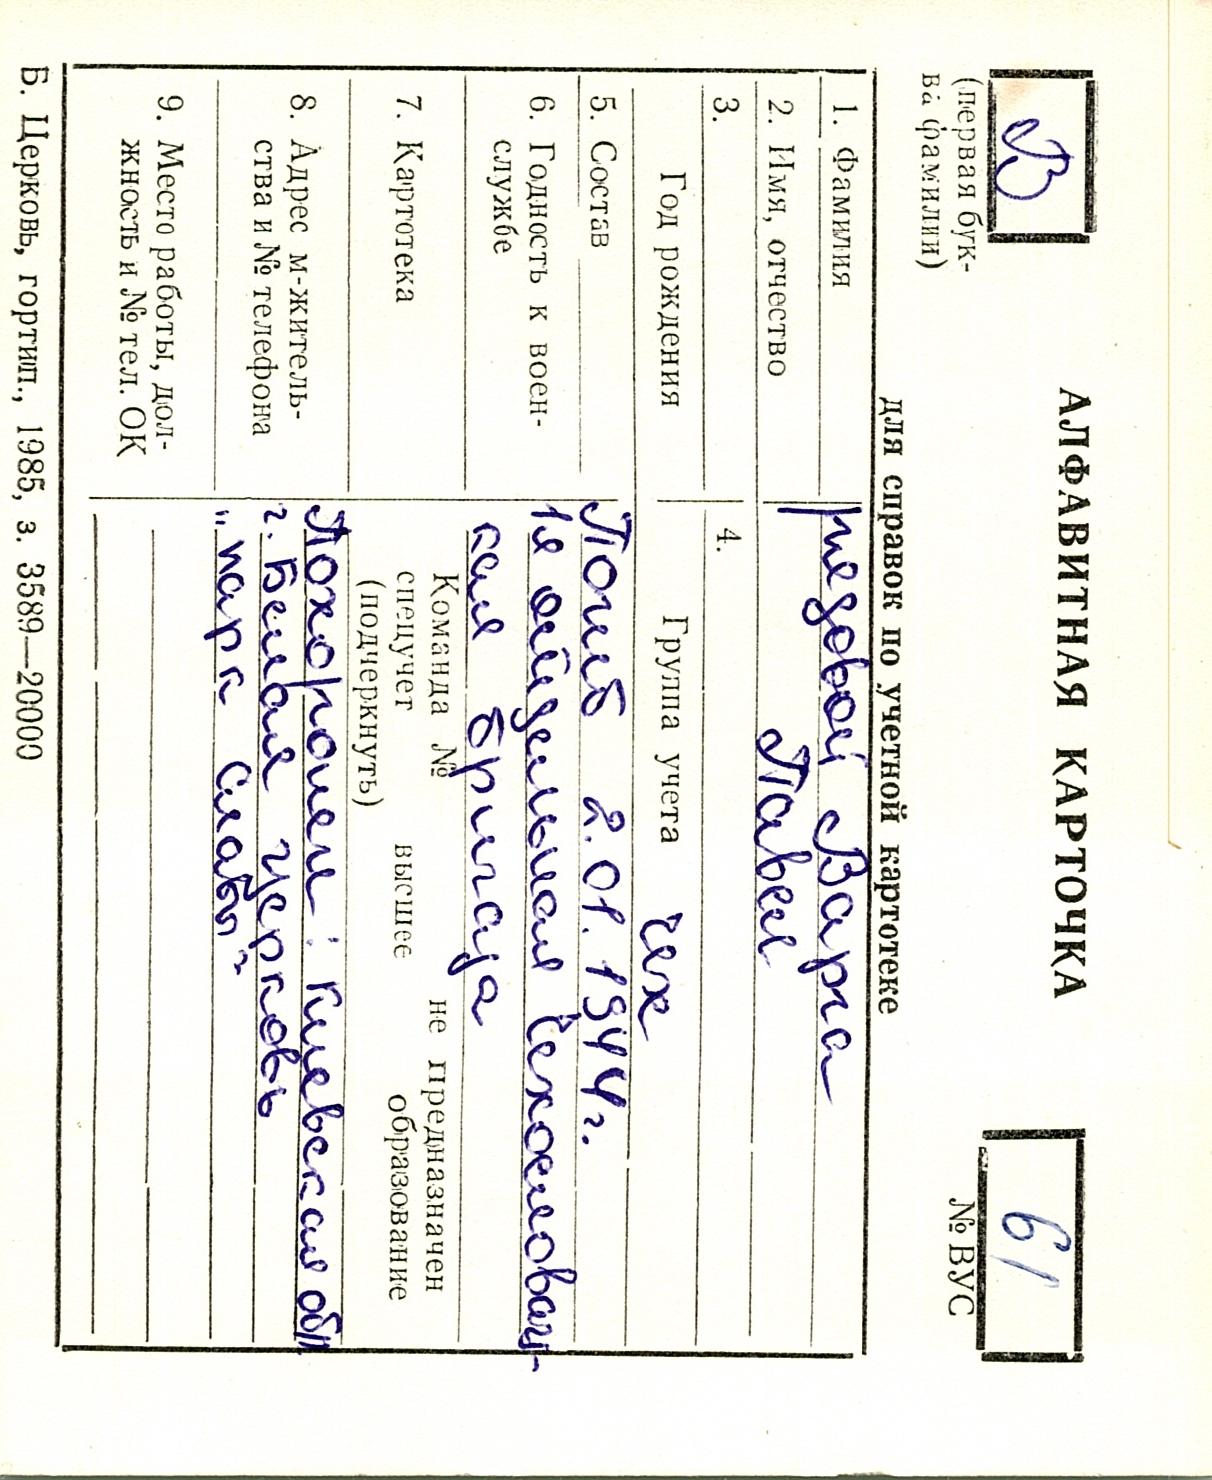 В
(первая бук-
ва фамилии)
АЛФАВИТНАЯ КАРТОЧКА
61
№ ВУС
для справок по учетной картотеке
1. Фамилия рядовой Варга
2. Имя, отчество Павел
3. Год рождения
4. Группа учета чех
5. Состав Погиб 2.01.1944г.
6. Годность к воен-
службе
1я отдельная Чехословац-
кая бригада
7. Картотека
Команда № не предназначен
спецучет высшее образование
(подчеркнуть)
8. Адрес м-житель-
ства и № телефона
Похоронен: Киевская обл
г. Белая Церковь
„парк Славы"
9. Место работы, дол-
жность и № тел. ОК
Б. Церковь, гортип., 1985, з. 3589—20000